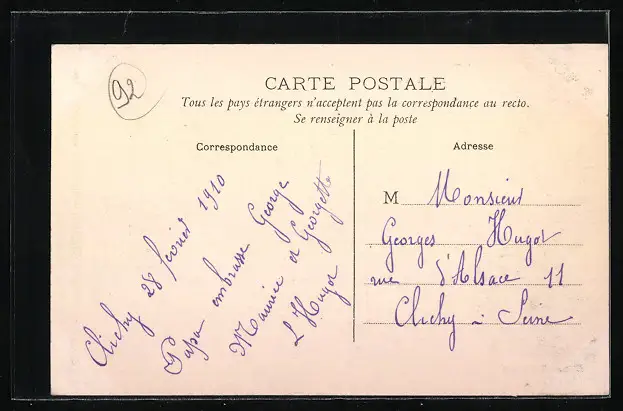 92
CARTE POSTALE
Tous les pays étrangers n'acceptent pas la correspondance au recto.
Se renseigner à la poste
Correspondance
Clichy 28 fevrier 1910
Papa embrasse George
Maurice et Georgette
L Hugot
Adresse
M Monsieur
Georges Hugot
rue d'Alsace 11
Clichy - Seine